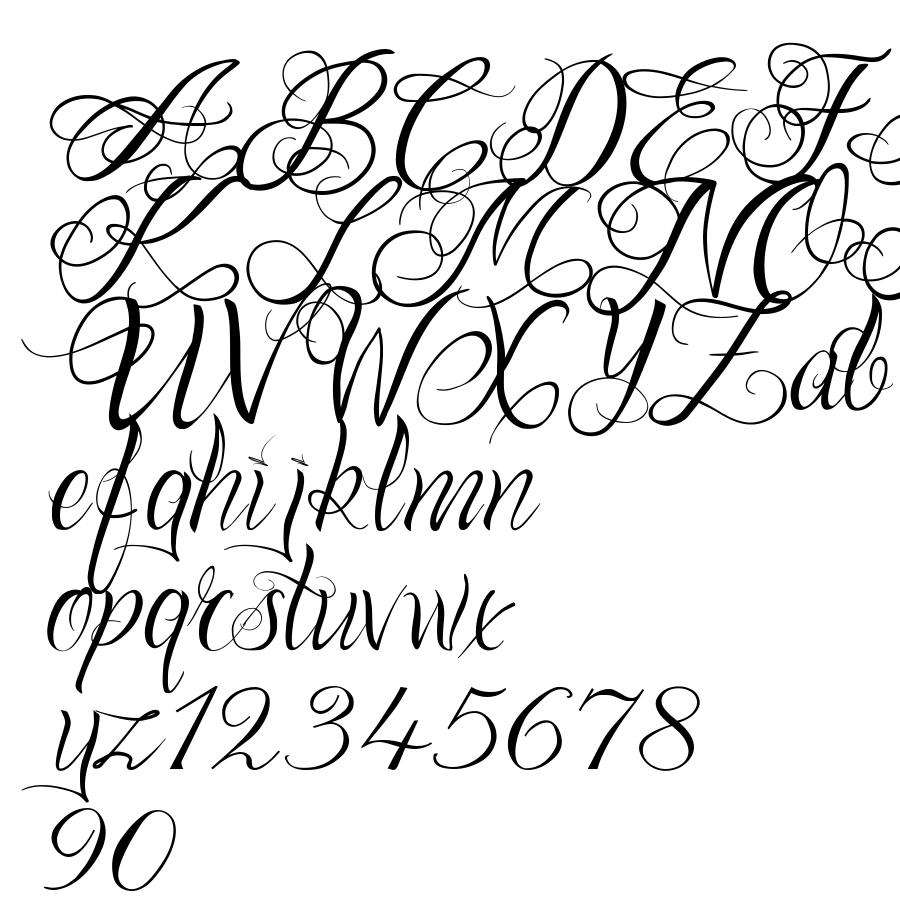 ABCDEF
KLMN
UVWXYZab
efghijklmn
opqrstuvwx
yz12345678
90